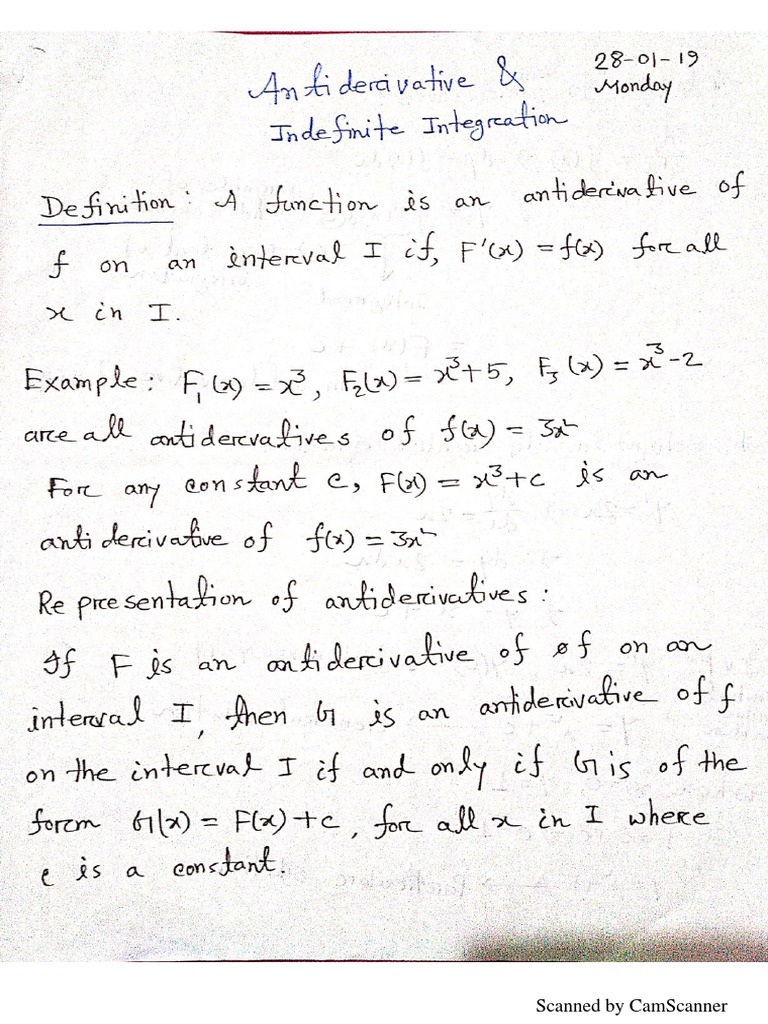 28-01-19
Antiderivative & Monday
Indefinite Integration
Definition: A function is an antiderivative of
f on an interval I if, F'(x) = f(x) for all
x in I.
Example: F₁(x) = x³, F₂(x) = x³+5, F₃(x) = x³-2
are all antidervatives of f(x) = 3x²
For any constant c, F(x) = x³+c is an
antiderivative of f(x) = 3x²
Representation of antiderivatives:
If F is an antiderivative of f on an
interval I, then G is an antiderivative of f
on the interval I if and only if G is of the
form G(x) = F(x)+c, for all x in I where
c is a constant.
Scanned by CamScanner